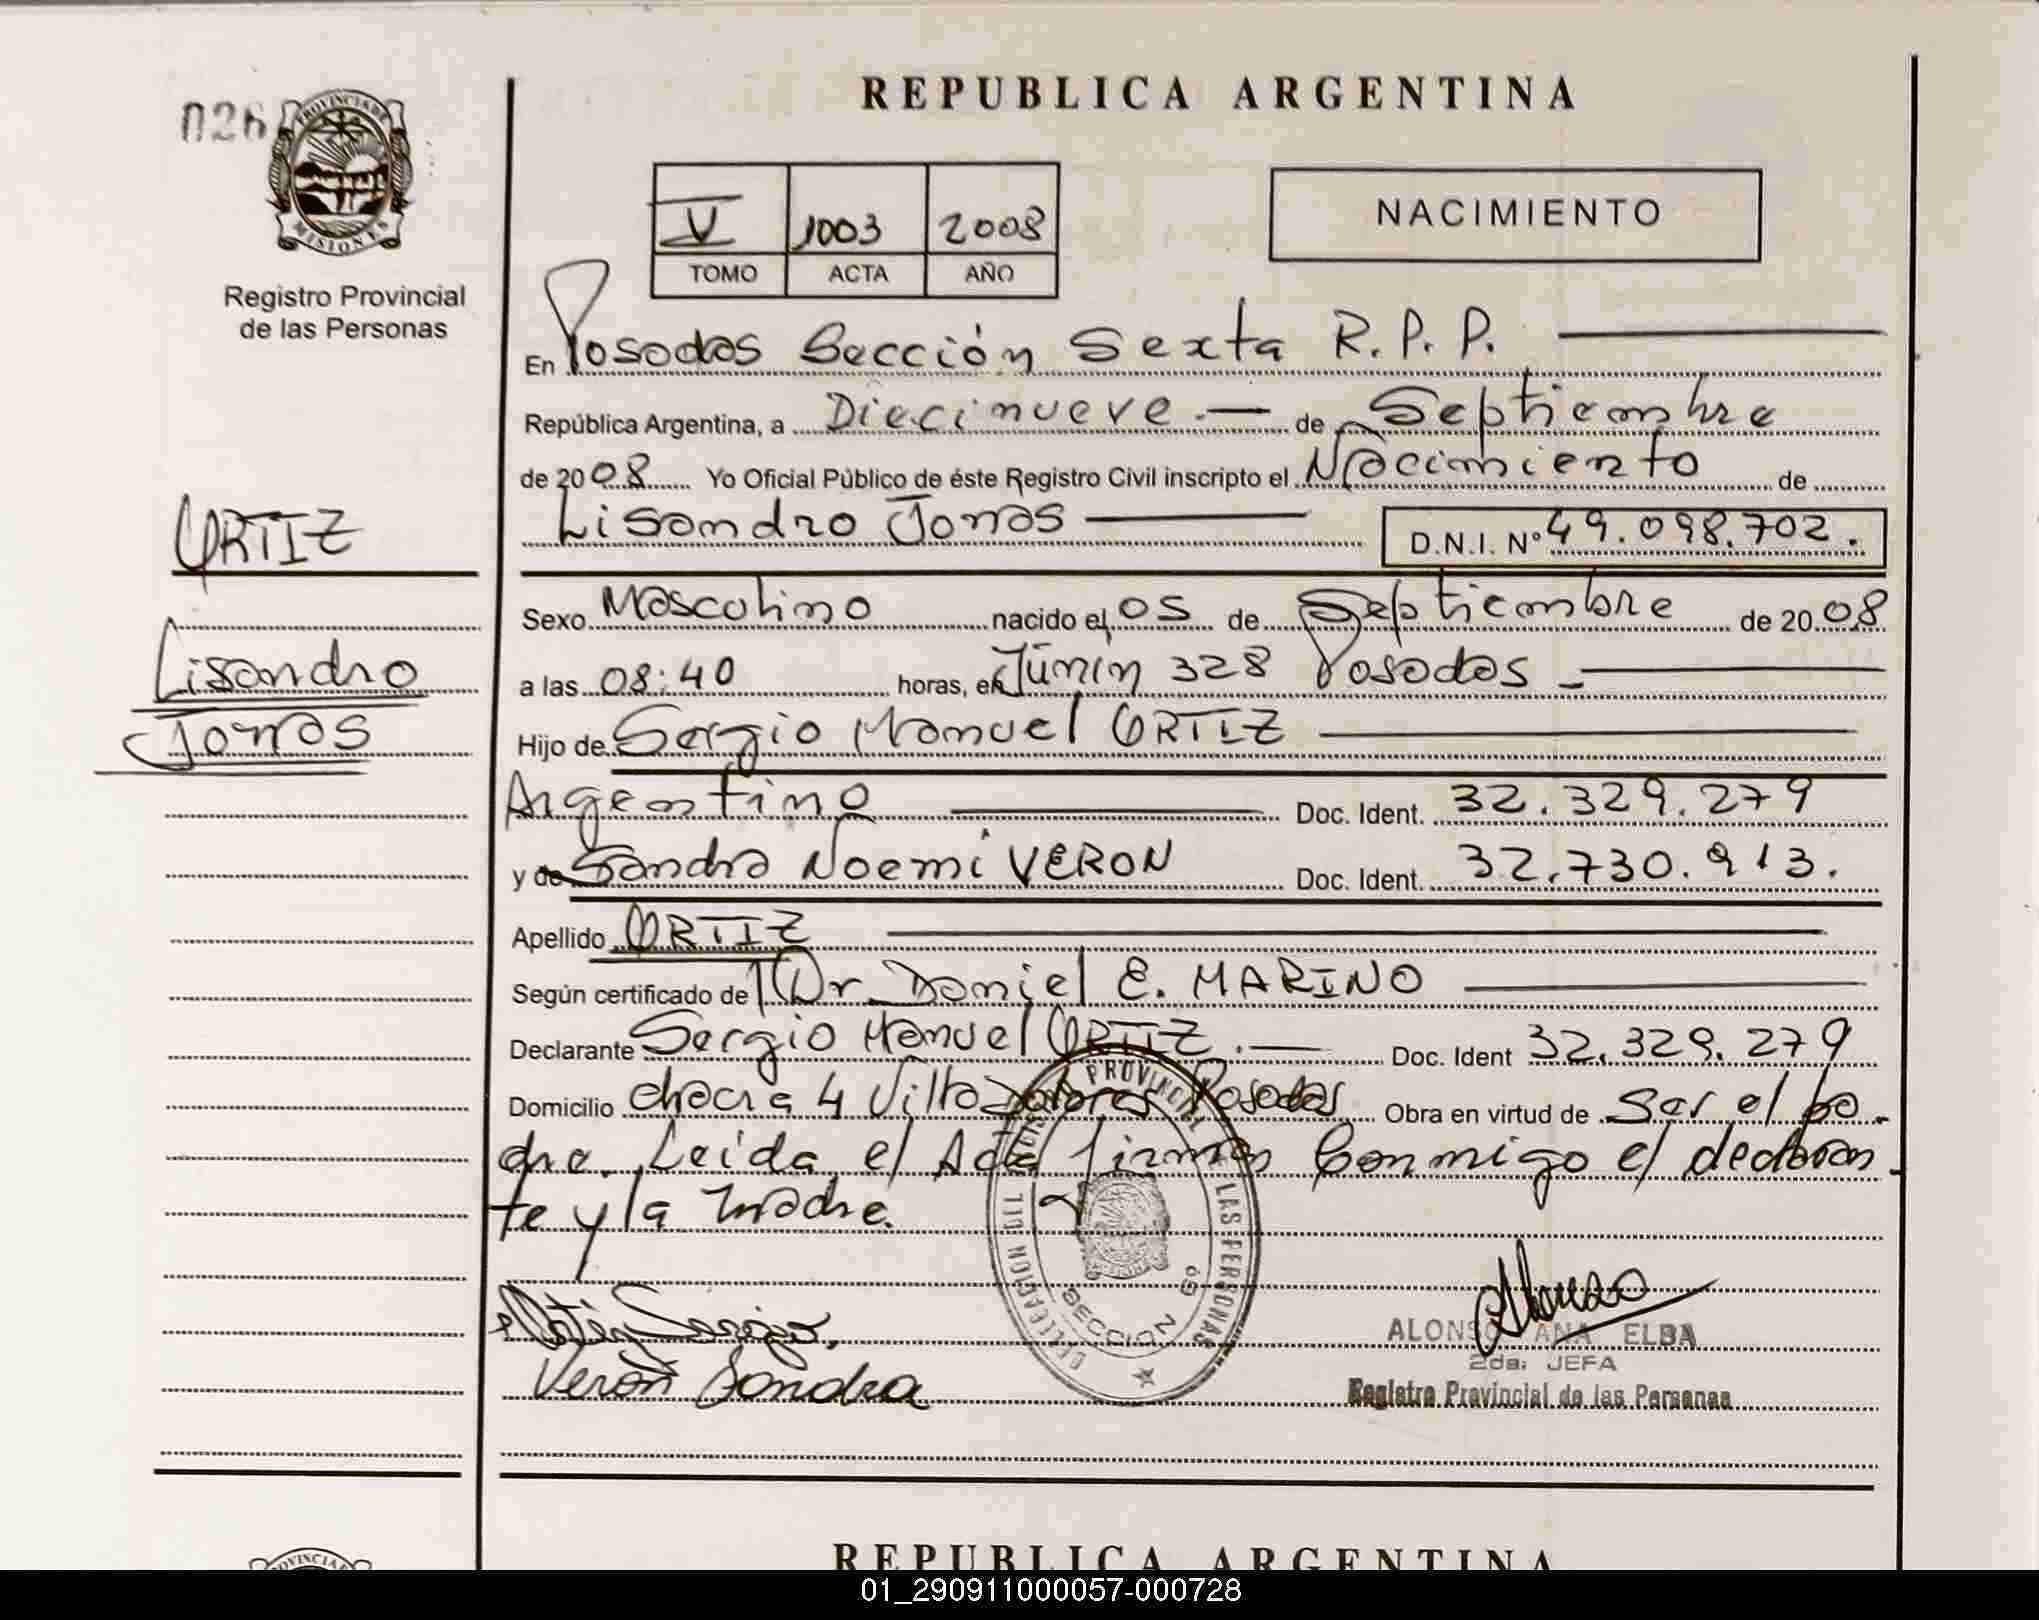 026
PROVINCIA DE
MISIONES
Registro Provincial
de las Personas
ORTIZ
Lisandro
Jonas
REPUBLICA ARGENTINA
V 1003 2008
TOMO ACTA AÑO
NACIMIENTO
En Posadas Sección Sexta R.P.P.
República Argentina, a Diecinueve.— de Septiembre
de 2008 Yo Oficial Público de éste Registro Civil inscripto el Nacimiento de
Lisandro Jonas D.N.I. N° 49.098.702.
Sexo Masculino nacido el 05 de Septiembre de 2008
a las 08:40 horas, en Junín 328 Posadas
Hijo de Sergio Manuel ORTIZ
Argentino Doc. Ident. 32.329.279
y de Sandra Noemí VERON Doc. Ident. 32.730.913.
Apellido ORTIZ
Según certificado de Dr Daniel E. MARINO
Declarante Sergio Manuel ORTIZ.— Doc. Ident 32.329.279
Domicilio chacra 4 Villa Dolores Posadas Obra en virtud de Ser el pa-
dre. Leída el Acta firman Conmigo el declaran-
te y la madre.
DELEGACION DEL REGISTRO PROVINCIAL DE LAS PERSONAS
SECCION 6ª
Sergio.
Verón Sandra
Alonso
ALONSO ANA ELBA
2da. JEFA
Registro Provincial de las Personas
PROVINCIA
REPUBLICA ARGENTINA
01_290911000057-000728